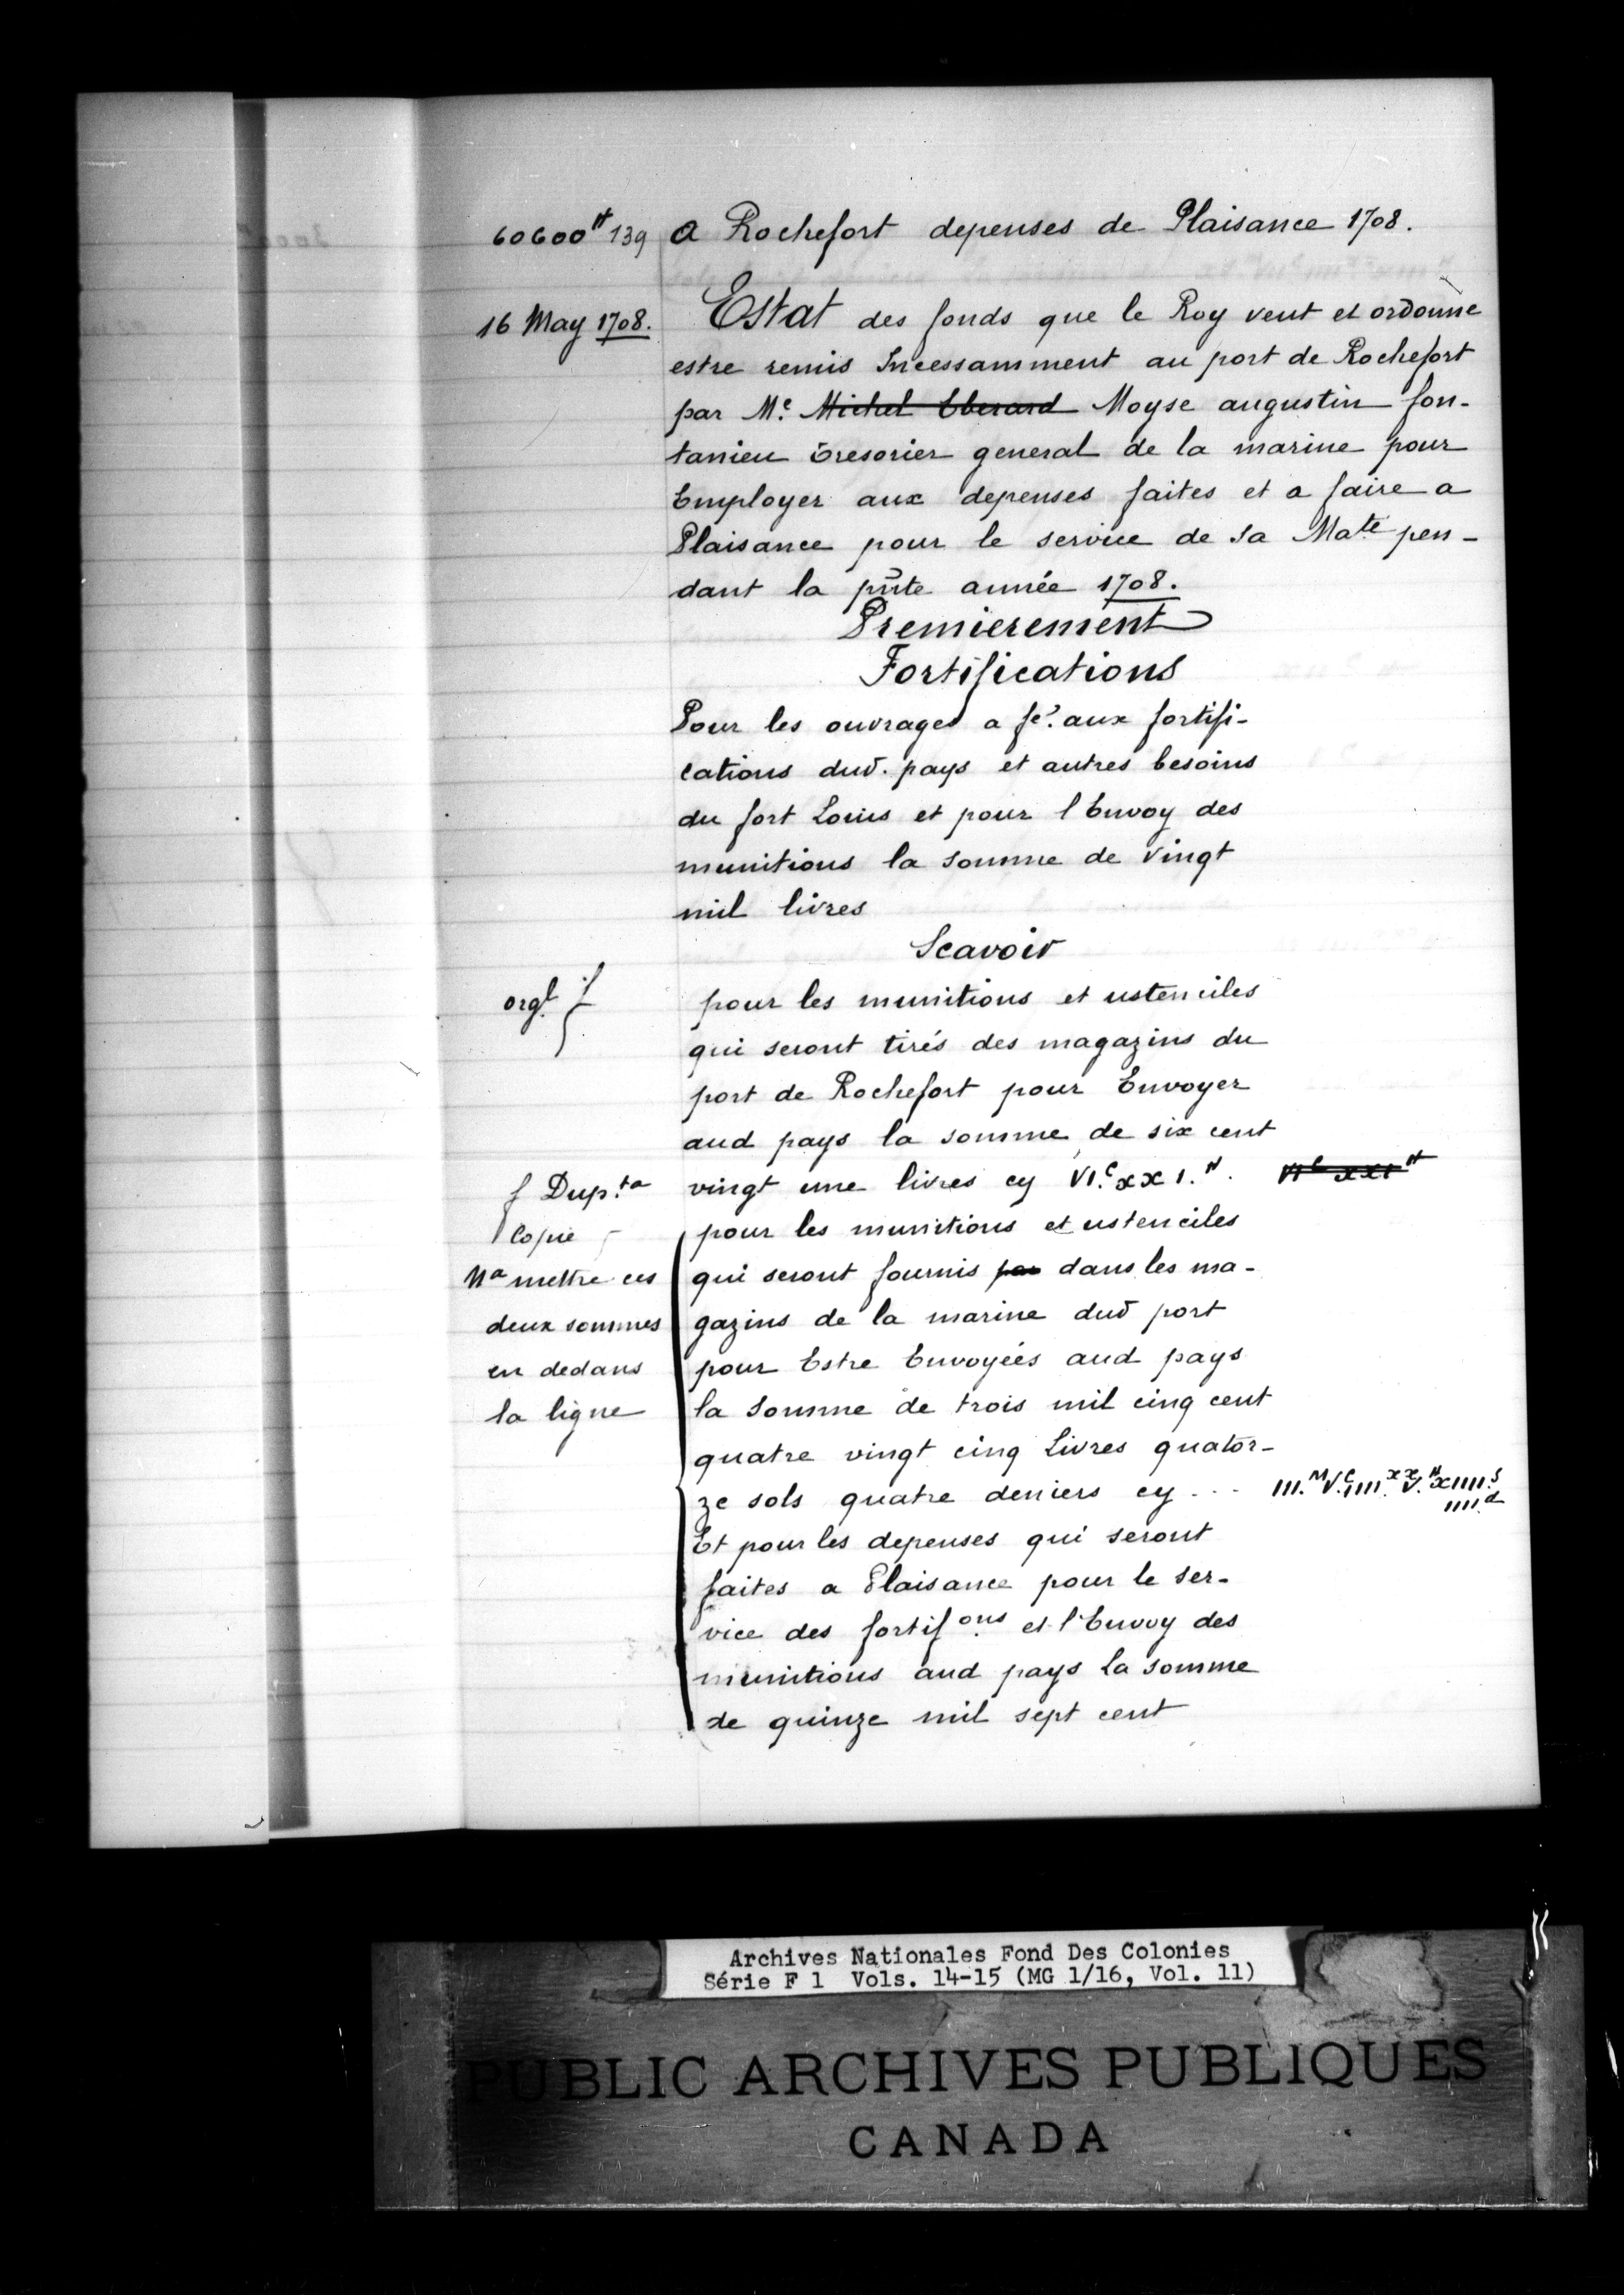 60600ᴴ 139 a Rochefort depenses de Plaisance 1708.
16 May 1708. Estat des fonds que le Roy veut et ordonne
estre remis Incessamment au port de Rochefort
par Mᵉ. Michel Eberard Moyse augustin fon-
tanieu Tresorier general de la marine pour
Employer aux depenses faites et a faire a
Plaisance pour le service de sa Maᵗᵉ pen-
dant la pn̄te année 1708.
Premierement
Fortifications
Pour les ouvrages a fᵉ. aux fortifi-
cations dud. pays et autres besoins
du fort Louis et pour l'Envoy des
munitions la somme de vingt
mil livres
Scavoir
orgˡ. pour les munitions et ustenciles
qui seront tirés des magazins du
port de Rochefort pour Envoyer
aud pays la somme de six cent
f Dup.ᵗᵃ vingt une livres cy VI.ᶜxxI.ᴴ. VIᶜ xxIᴴ
Copie pour les munitions et ustenciles
Nᵃ mettre ces qui seront fournis par dans les ma-
deux sommes gazins de la marine dud port
en dedans pour Estre Envoyées aud pays
la ligne la somme de trois mil cinq cent
quatre vingt cinq Livres quator-
ze sols quatre deniers cy ... III.ᴹV.ᶜIIII.ˣˣV.ᴴxIIII.ˢ
IIII.ᵈ
Et pour les depenses qui seront
faites a Plaisance pour le ser-
vice des fortifᵒⁿˢ et l'Envoy des
munitions aud pays la somme
de quinze mil sept cent
Archives Nationales Fond Des Colonies
Série F 1 Vols. 14-15 (MG 1/16, Vol. 11)
PUBLIC ARCHIVES PUBLIQUES
CANADA